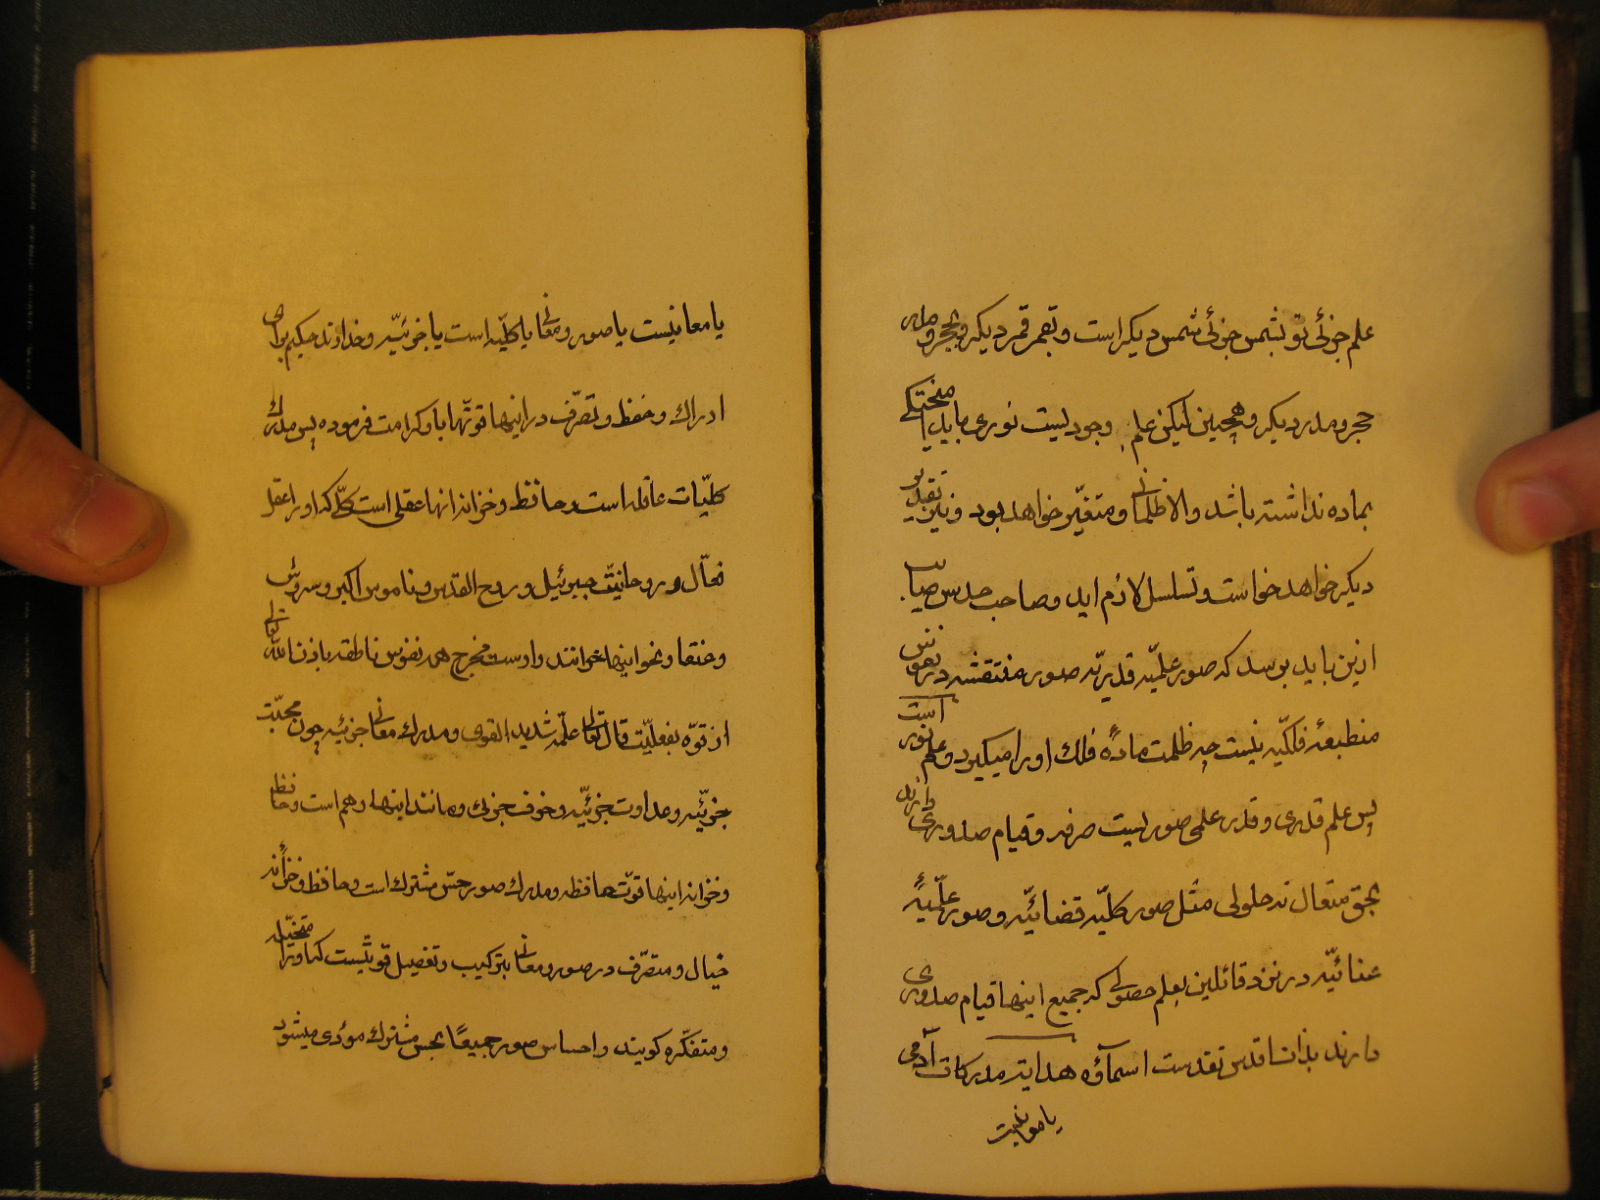 علم جزئی تو بشمس جزئی شمس دیکر است و بقمر قمر دیکر و بحجر و مدر
حجر و مدر دیکر و همچنین لیکن علم وجودیست نوری باید
بماده نداشته باشد والا ظلمانی و متغیّر خواهد بود و نیز تقدیر
دیکر خواهد خواست و تسلسل لازم اید و صاحب حدس صایب
ازین باید برسد که صور علمیّه قدریّه صور منتقشه در نفوس
منطبعهٔ فلکیّه نیست چه ظلمت مادهٔ فلک او را میکیرد و علم نور است
پس علم قدری و قدر علمی صوریست صرفه و قیام صدوری دارند
بحق متعال نه حلولی مثل صور کلیّه قضائیّه و صور علمیّهٔ
عنائیّه در نزد قائلین بعلم حصولی که جمیع اینها قیام صدوری
دارند بذات اقدس تقدست اسمآؤه هدایة مدرکات آدمی
یا معانیست
یا معانیست یا صور و معانی یا کلیّه است یا جزئیّه و خداوند حکیم برای
ادراک و حفظ و تصرّف در اینها قوتها باو کرامت فرموده پس مدرک
کلیّات عاقله است و حافظ و خزانه انها عقلی است کلّی که او را عقل
فعّال و روحانیّت جبرئیل و روح القدس و ناموس اکبر و سروش
و عنقا و نحو اینها خوانند و اوست مخرج هر نفوس ناطقه باذن الله تعالی
از قوّه بفعلیّت قال تعالی علّمه شدید القوی و مدرک معانی جزئیه چون محبّت
جزئیّه و عداوت جزئیّه و خوف جزئی و مانند اینها وهم است و حافظ
و خزانه اینها قوّت حافظه و مدرک صور حسّ مشترک است و حافظ و خزانه
خیال و متصرّف در صور و معانی بترکیب و تفصیل قوتیست که او را متخیّله
و متفکّره کویند و احساس صور جمیعًا بحس مشترک مؤدی میشود